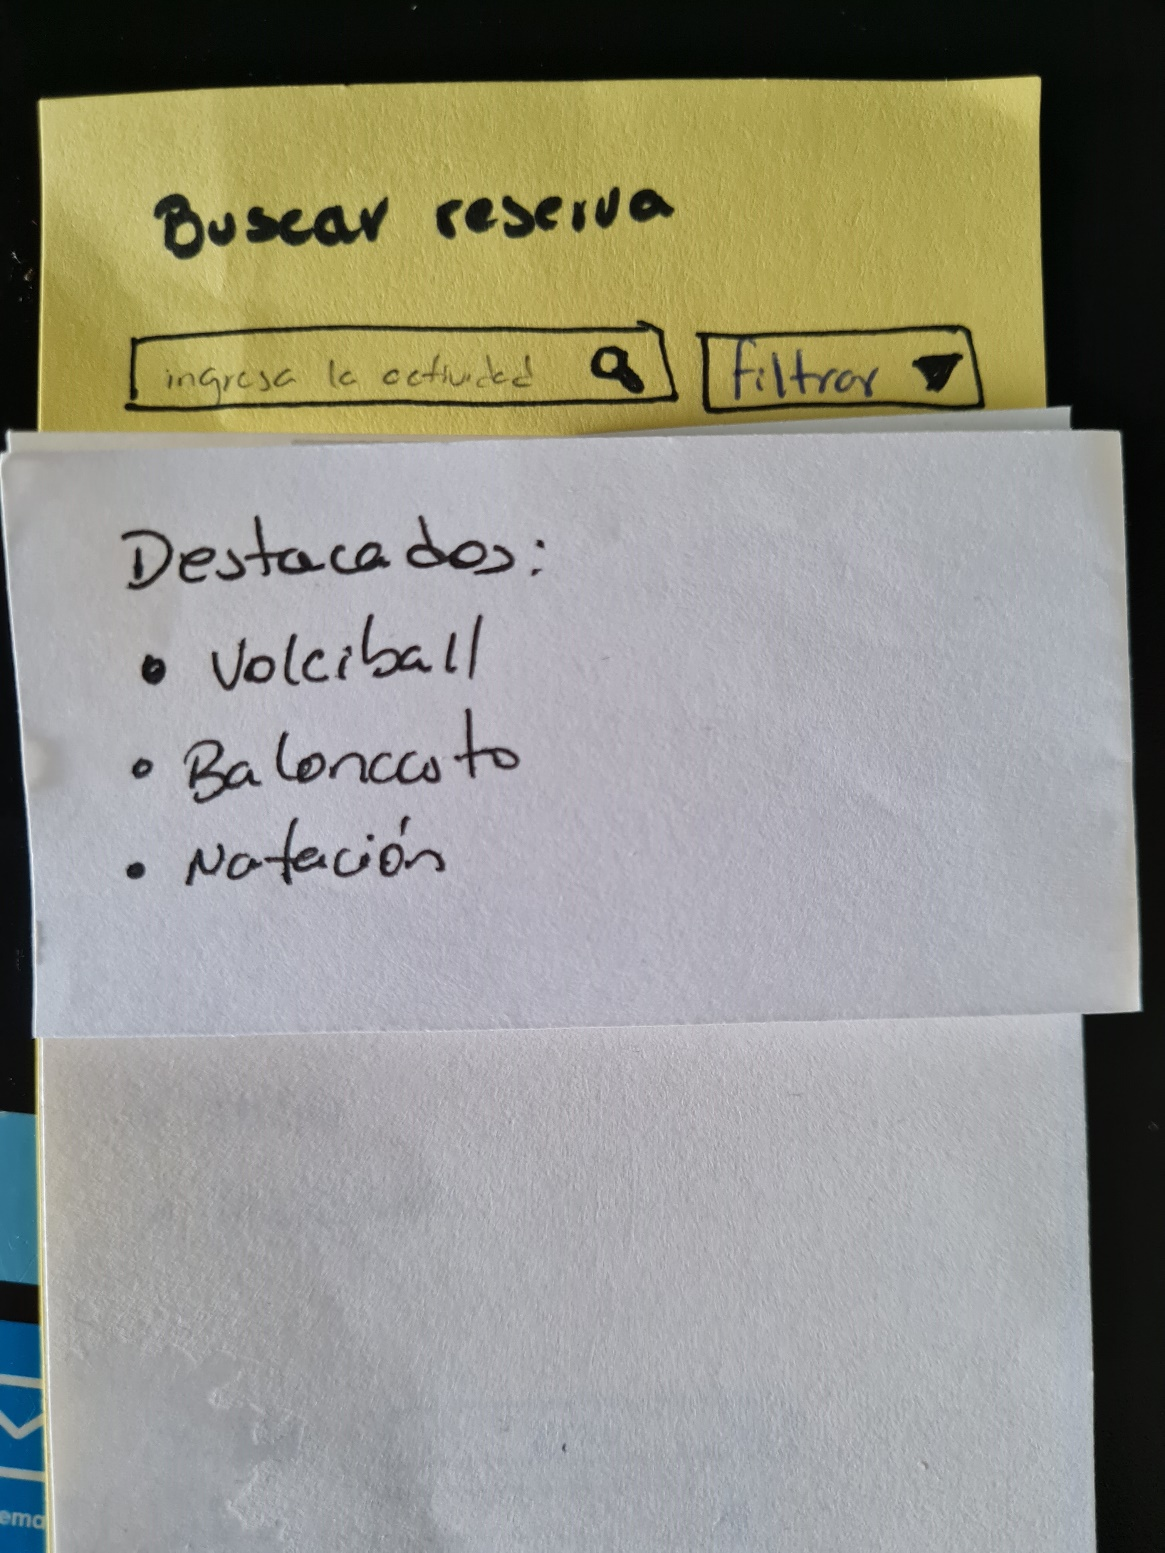 Buscar reserva
ingresa la actividad
filtrar
Destacados:
• Voleiball
• Baloncesto
• Natación
ema